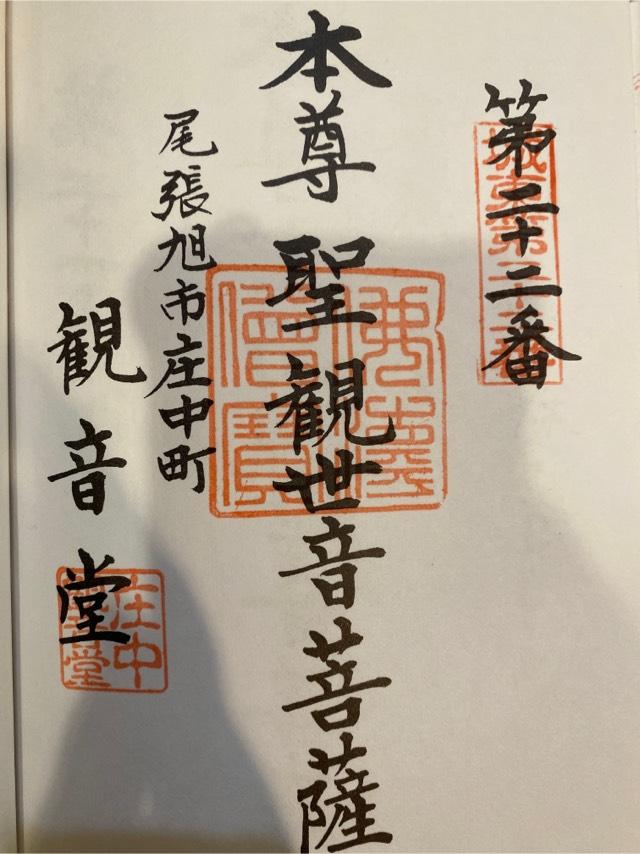 第二十二番
本尊 聖観世音菩薩
尾張旭市庄中町
観音堂
庄中